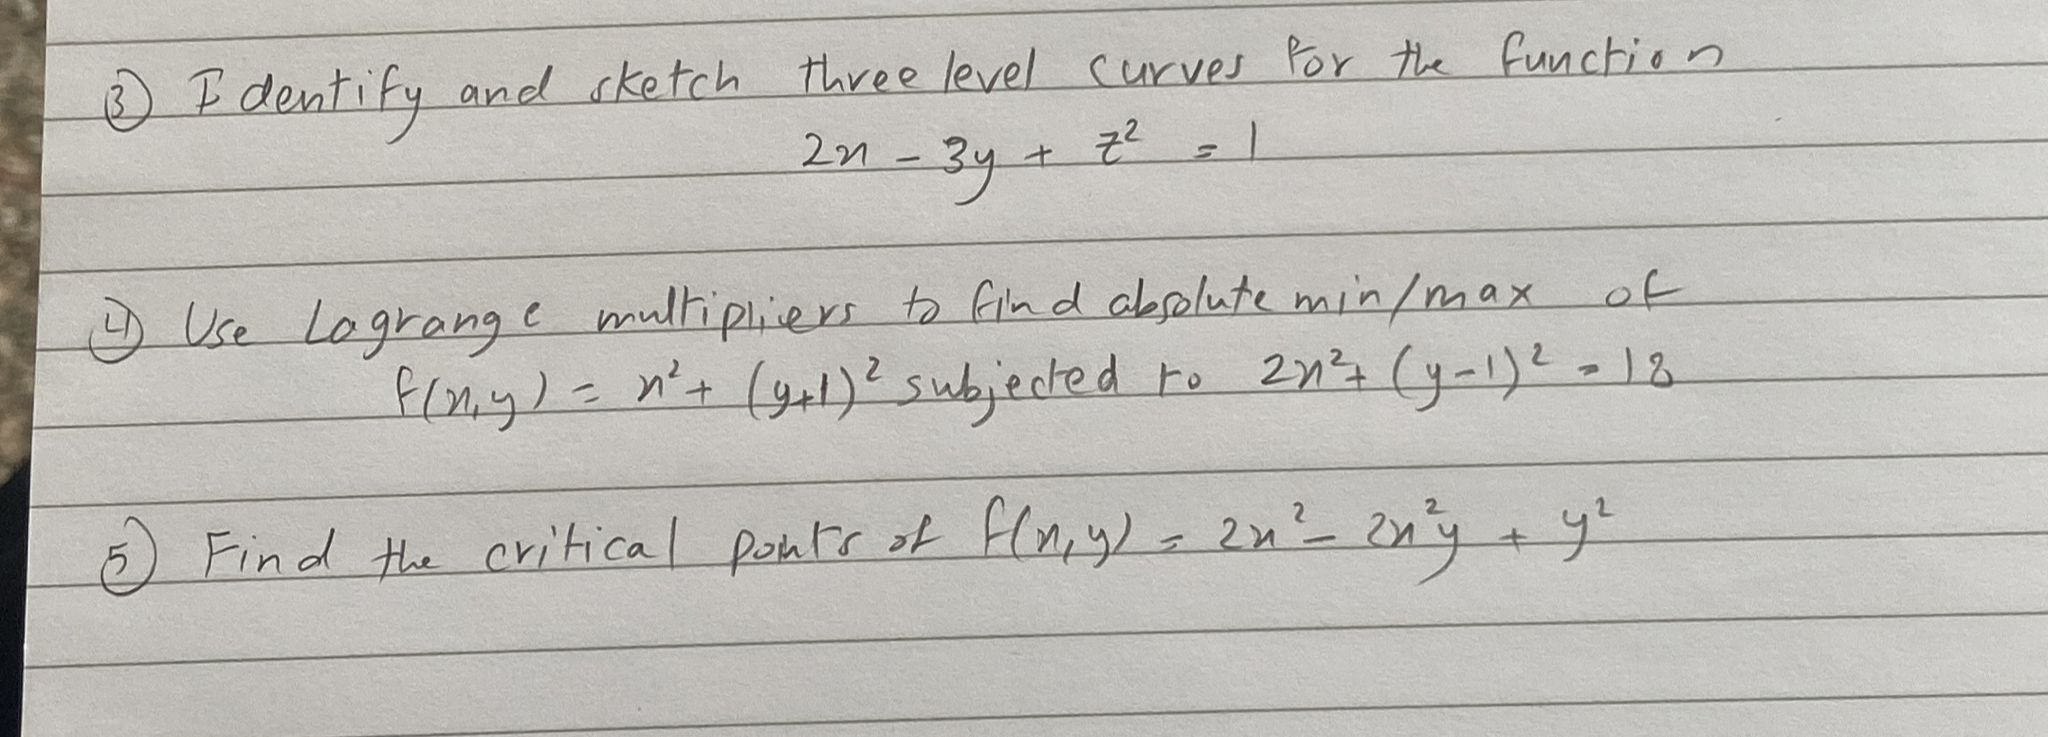 ③ Identify and sketch three level curves for the function
2x - 3y + z² = 1
④ Use Lagrange multipliers to find absolute min/max of
f(x,y) = x² + (y+1)² subjected to 2x² + (y-1)² = 18
⑤ Find the critical points of f(x,y) = 2x² - 2x²y + y²